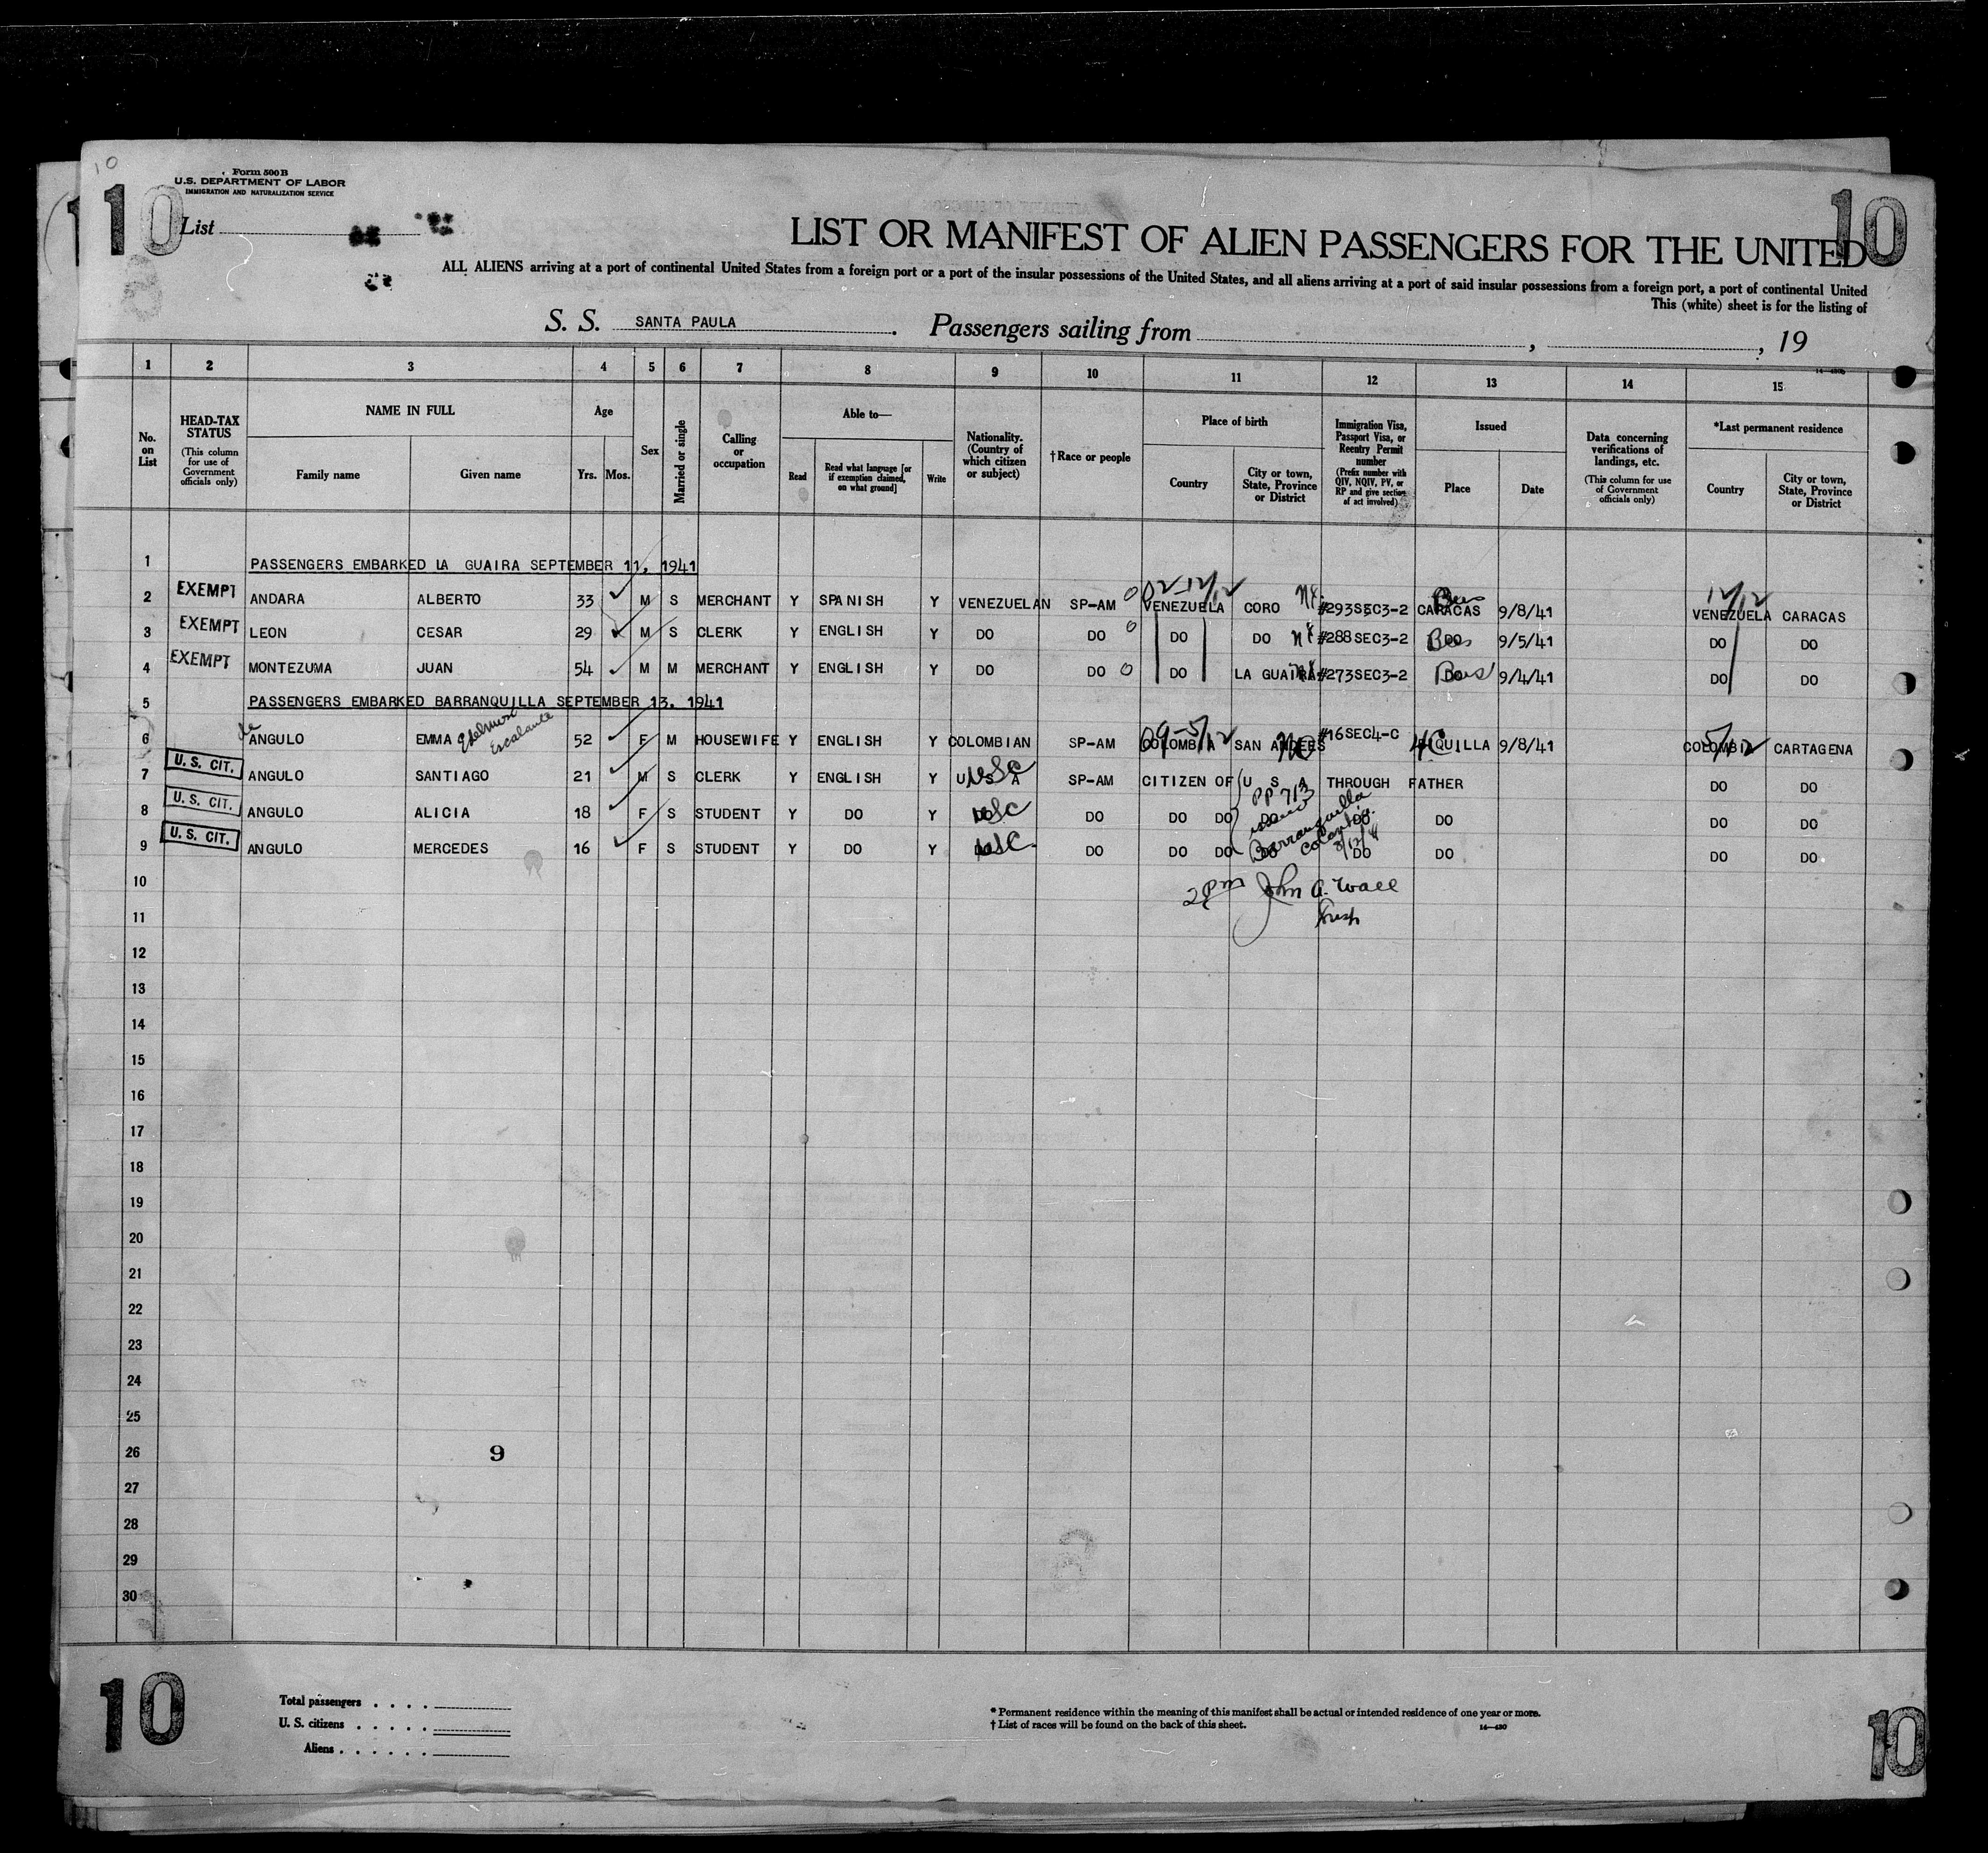 10
Form 500 B
U.S. DEPARTMENT OF LABOR
IMMIGRATION AND NATURALIZATION SERVICE
10 10
List
LIST OR MANIFEST OF ALIEN PASSENGERS FOR THE UNITED
ALL ALIENS arriving at a port of continental United States from a foreign port or a port of the insular possessions of the United States, and all aliens arriving at a port of said insular possessions from a foreign port, a port of continental United
This (white) sheet is for the listing of
S. S. SANTA PAULA. Passengers sailing from , , 19
1 2 3 4 5 6 7 8 9 10 11 12 13 14 15
No. on List
HEAD-TAX STATUS (This column for use of Government officials only)
NAME IN FULL Family name Given name
Age Yrs. Mos.
Sex
Married or single
Calling or occupation
Able to— Read Read what language [or if exemption claimed, on what ground] Write
Nationality. (Country of which citizen or subject)
†Race or people
Place of birth Country City or town, State, Province or District
Immigration Visa, Passport Visa, or Reentry Permit number (Prefix number with QIV, NQIV, PV, or RP and give section of act involved)
Issued Place Date
Data concerning verifications of landings, etc. (This column for use of Government officials only)
*Last permanent residence Country City or town, State, Province or District
1 PASSENGERS EMBARKED LA GUAIRA SEPTEMBER 11, 1941
2 EXEMPT ANDARA ALBERTO 33 M S MERCHANT Y SPANISH Y VENEZUELAN SP-AM VENEZUELA CORO #293SEC3-2 CARACAS 9/8/41 VENEZUELA CARACAS
3 EXEMPT LEON CESAR 29 M S CLERK Y ENGLISH Y DO DO DO DO #288SEC3-2 DO 9/5/41 DO DO
4 EXEMPT MONTEZUMA JUAN 54 M M MERCHANT Y ENGLISH Y DO DO DO LA GUAIRA #273SEC3-2 DO 9/4/41 DO DO
5 PASSENGERS EMBARKED BARRANQUILLA SEPTEMBER 13. 1941
6 de ANGULO EMMA Escalante 52 F M HOUSEWIFE Y ENGLISH Y COLOMBIAN SP-AM COLOMBIA SAN ANDRES #16SEC4-C B'QUILLA 9/8/41 COLOMBIA CARTAGENA
7 U. S. CIT. ANGULO SANTIAGO 21 M S CLERK Y ENGLISH Y U S A USC SP-AM CITIZEN OF U S A THROUGH FATHER DO DO
8 U. S. CIT. ANGULO ALICIA 18 F S STUDENT Y DO Y DO USC DO DO DO DO DO DO DO DO
9 U. S. CIT. ANGULO MERCEDES 16 F S STUDENT Y DO Y DO USC DO DO DO DO DO DO DO DO
PP 713
issued
Barranquilla
Colombia
10 2 pm John A. Wall
11 Insp
12
13
14
15
16
17
18
19
20
21
22
23
24
25
26 9
27
28
29
30
10 10
Total passengers
U. S. citizens
Aliens
* Permanent residence within the meaning of this manifest shall be actual or intended residence of one year or more.
† List of races will be found on the back of this sheet.
14—430